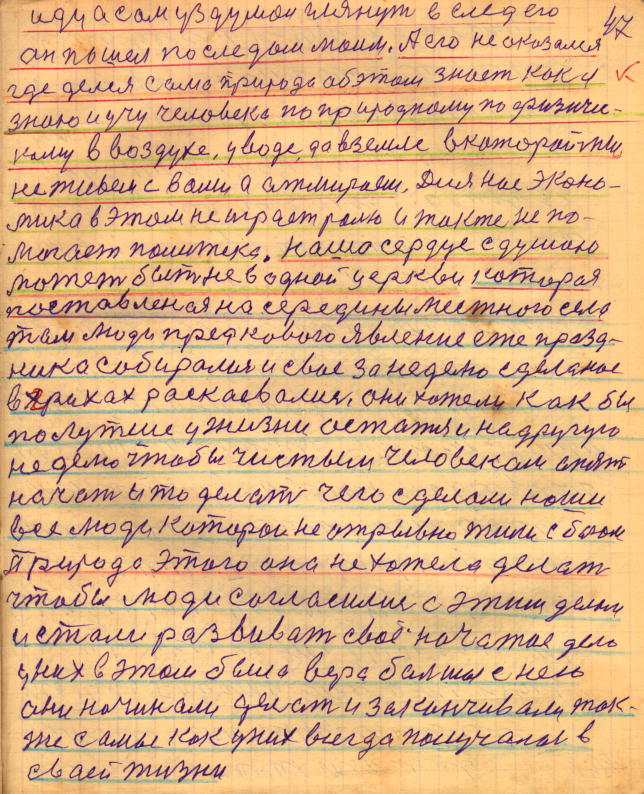 47
иду а сам уздумол глянут в след его
он пошел последом моим. А его не оказался
где делся сама природа об этом знает как и
знаю и учу человека по природному по физиче-
кому в воздухе, уводе, да вземле в каторой мы
не живем с вами а отмираем. Для нас эконо-
мика в этом не играет ролю и также не по-
могает политека. наша сердце с душаю
может быть не в одной церкви которая
поставленая на середины местного села
там люди предкового явление еже празд-
ника собиралися и свае за неделю сделаное
в грихах раскаевалися, они хотели как бы
полутше ужизни остатя и на другую
неделю чтобы чистым человекам опят
начат и то делат чего сделали наши
все люди которои не отрывно жили с богом
Природа этого она не хотела делат
чтобы люди согласилис с этим делом
и стали развиват своё начатое дело
у них в этом была вера балшая с нею
они начинали делат и заканчивали, так-
же самые как у них всегда получалос в
сваей жизни